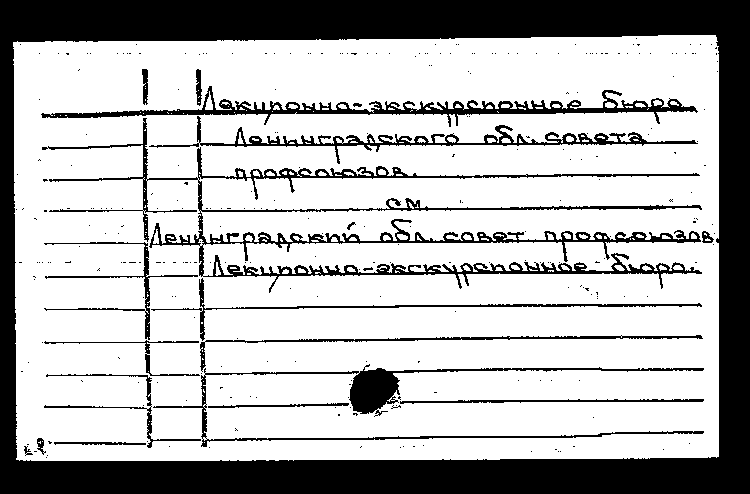 Лекционно-экскурсионное бюро
Ленинградского обл. совета
профсоюзов.
см.
Ленинградский обл. совет профсоюзов.
Лекционно-экскурсионное бюро.